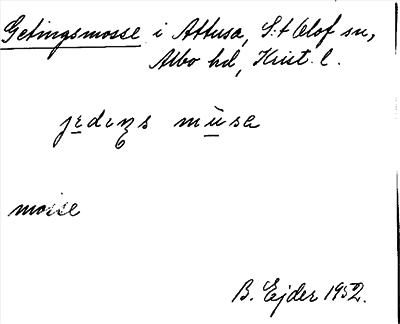 Getingsmosse i Attusa, S:t Olof sn,
Albo hd, Krist. l.
jɛdɩŋs mùsa
mosse
B. Ejder 1952.